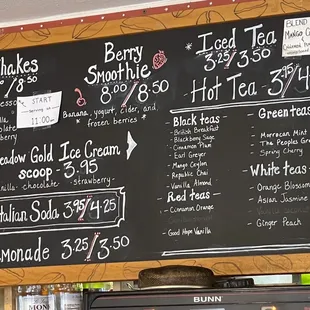 Shakes
8.50
START
11:00
Meadow Gold Ice Cream
scoop - 3.95
vanilla - chocolate - strawberry
Italian Soda 3.95/4.25
Lemonade 3.25/3.50
Berry
Smoothie
8.00/8.50
Banana, yogurt, cider, and
• frozen berries •
Iced Tea
3.25/3.50
Hot Tea 3.95/4.
BLEND
MANGO
Black teas
- British Breakfast
- Blackberry Sage
- Cinnamon Plum
- Earl Greyer
- Mango Ceylon
- Republic Chai
- Vanilla Almond
Red teas
- Cinnamon Orange
- Good Hope Vanilla
Green teas
- Moroccan Mint
- The Peoples Green
- Spring Cherry
White teas
- Orange Blossom
- Asian Jasmine
- Ginger Peach
BUNN